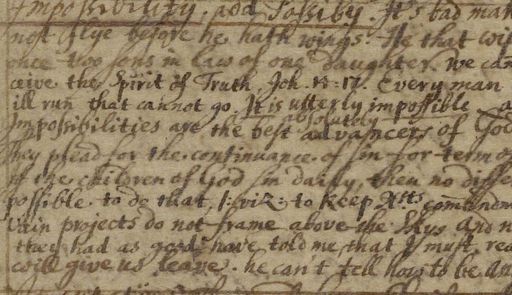 Impossibility, and Possiby. It's bad man
not flye before he hath wings. He that wis
once two sons in law of one daughter. we can
ceive the Spirit of Truth Joh. 14:17. Every man
ill run that cannot go. It is utterly impossible
absolutely
Impossibilities are the best advancers of God
They plead for the continuance of sin for term of
of the children of God in dairy, then no diffe
possible to do that, s: viz: to keep commandm
Vain projects do not frame above the And n
they had as good have told me that I must, rea
will give us leave. he can't tell how to be an